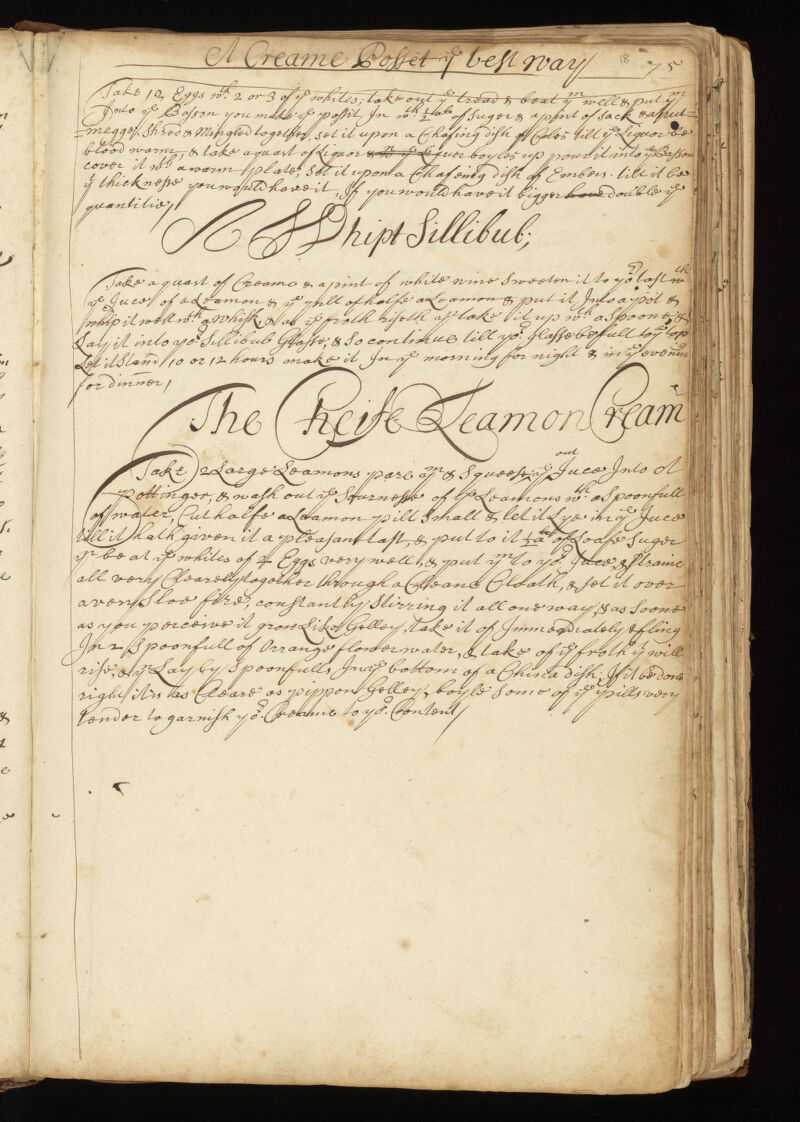 A Creame Posset yͤ best way
18
75
Take 12 Eggs wͭͪ 2 or 3 of yͤ whites; take out yͤ tread & beat yͫ well & put yͫ
Into yͤ Bason you make yͤ possit In wͭͪ ½ of Suger & a pint of Sack & a nut=
=megg Shred & Mingled together, set it upon a Chafing dish of Coles till yͤ Liquor be
blood warm, & take a quart of Liquor boyles up pour it into yͤ Basson
cover it wͭͪ a warm plate, Set it upon a Chafening dish of Embers till it be
yͤ thickness you would have it, If you would have it bigger double yͤ
quantitie/
A Whipt Sillibub;
Take a quart of Creame & a pint of white wine Sweeten it to yoͬ tast wͭͪ
yͤ Juce of a Leamon & yͤ pill of halfe a Leamon & put it Into a pot &
whip it well wͭͪ a Whisk & as yͤ froth riseth yͭ take it up wͭͪ a Spoone &
Lay it into yoͬ Sillibub Glasse, & So continue till yoͬ Glasse be full to yͤ top
Let it Stand 10 or 12 hours make it In yͤ morning for night & in yͤ evening
for dinner/
The Cheife Leamon Cream
Take 2 Large Leamons pare yͫ & Squeese out yͤ Juce Into A
Pottinger, & wash out yͤ Sournesse of yͤ Leamons wͭͪ a Spoonfull
of water, Cut halfe a Leamon pill Small & let it Lye in yͤ Juce
till it hath given it a pleasant tast, & put to it ½ of Loafe Suger
yͫ beat yͤ whites of 4 Eggs very well, & put yͫ to yoͬ Juce, & Straine
all very Clearely together through a Cleane Cloath, & set it over
a very Sloe fire, constantly Stirring it all one way, & as Soone
as you perceive it grow Like Gelley, take it of Immediately & fling
In 2 Spoonfull of Orrange flower water, & take of yͤ froth yͭ will
rise, & yͫ Lay by Spoonfulls In yͤ bottom of a China dish, If it be done
right it is as Cleare as pyppon Gelley, boyle Some of yͤ pills very
tender to garnish yoͬ Creame to yoͬ Content/